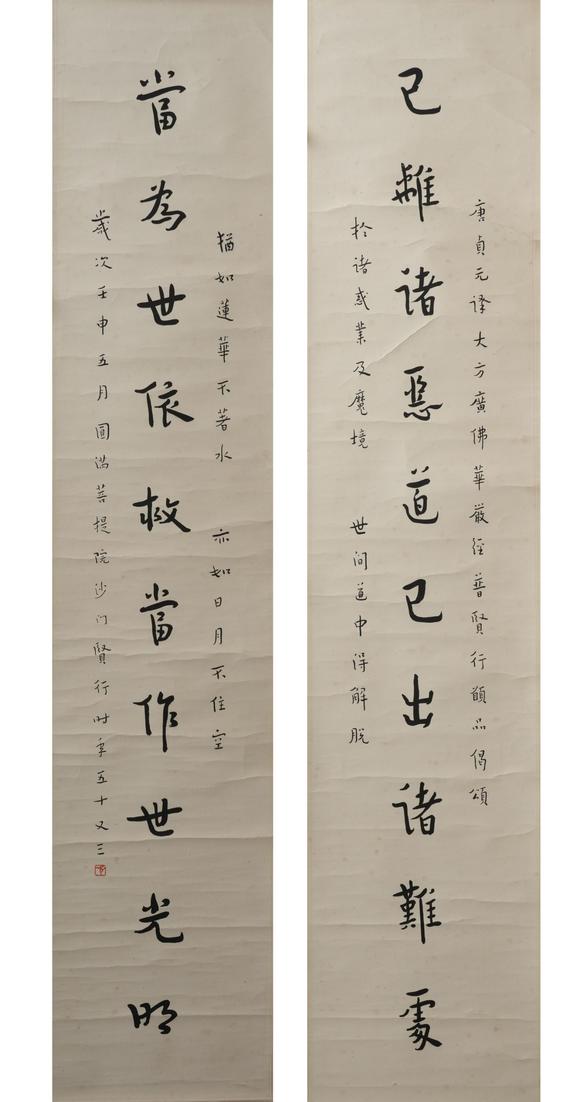 唐貞元譯大方廣佛華嚴經普賢行願品偈頌
已離諸惡道已出諸難處
於諸惑業及魔境 世间道中得解脫
猶如蓮華不著水 亦如日月不住空
當為世依救當作世光明
歲次壬申五月圓满菩提院沙门賢行时年五十又三